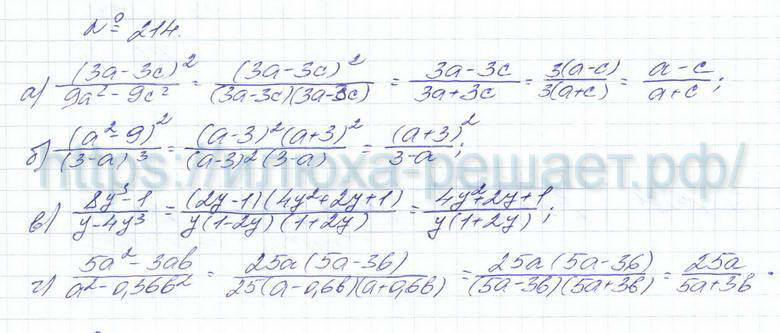 № 214.
а) (3a-3c)²/(9a²-9c²) = (3a-3c)²/((3a-3c)(3a-3c)) = (3a-3c)/(3a+3c) = 3(a-c)/(3(a+c)) = (a-c)/(a+c);
б) (a²-9)²/(3-a)³ = (a-3)²(a+3)²/((a-3)²(3-a)) = (a+3)²/(3-a);
в) (8y³-1)/(y-4y³) = (2y-1)(4y²+2y+1)/(y(1-2y)(1+2y)) = (4y²+2y+1)/(y(1+2y));
г) (5a²-3ab)/(a²-0,36b²) = 25a(5a-3b)/(25(a-0,6b)(a+0,6b)) = 25a(5a-3b)/((5a-3b)(5a+3b)) = 25a/(5a+3b).